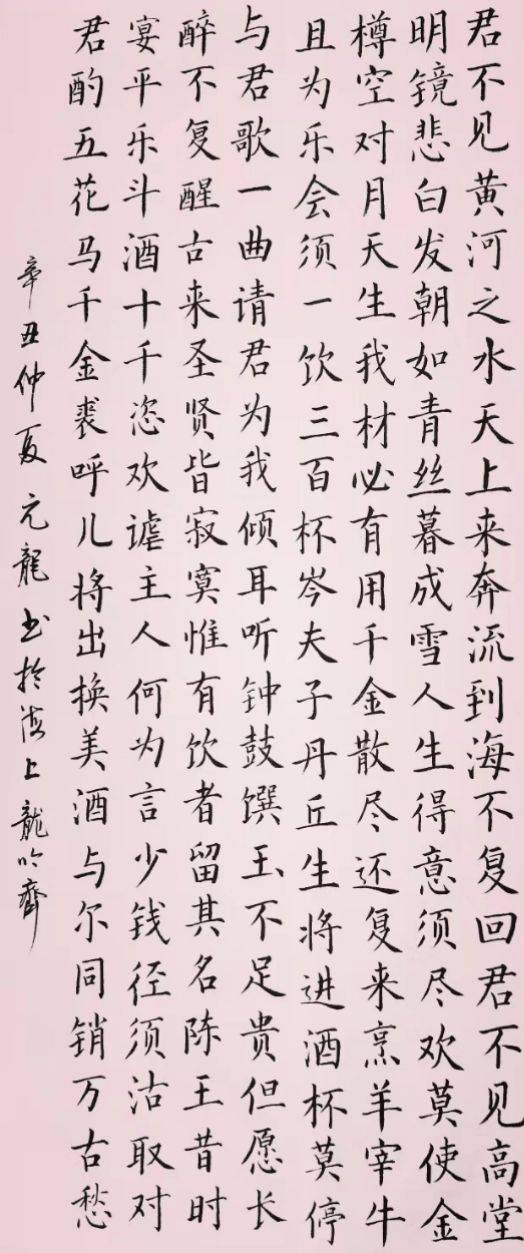 君不见黄河之水天上来奔流到海不复回君不见高堂
明镜悲白发朝如青丝暮成雪人生得意须尽欢莫使金
樽空对月天生我材必有用千金散尽还复来烹羊宰牛
且为乐会须一饮三百杯岑夫子丹丘生将进酒杯莫停
与君歌一曲请君为我倾耳听钟鼓馔玉不足贵但愿长
醉不复醒古来圣贤皆寂寞惟有饮者留其名陈王昔时
宴平乐斗酒十千恣欢谑主人何为言少钱径须沽取对
君酌五花马千金裘呼儿将出换美酒与尔同销万古愁
辛丑仲夏元龍书於海上龍吟齋